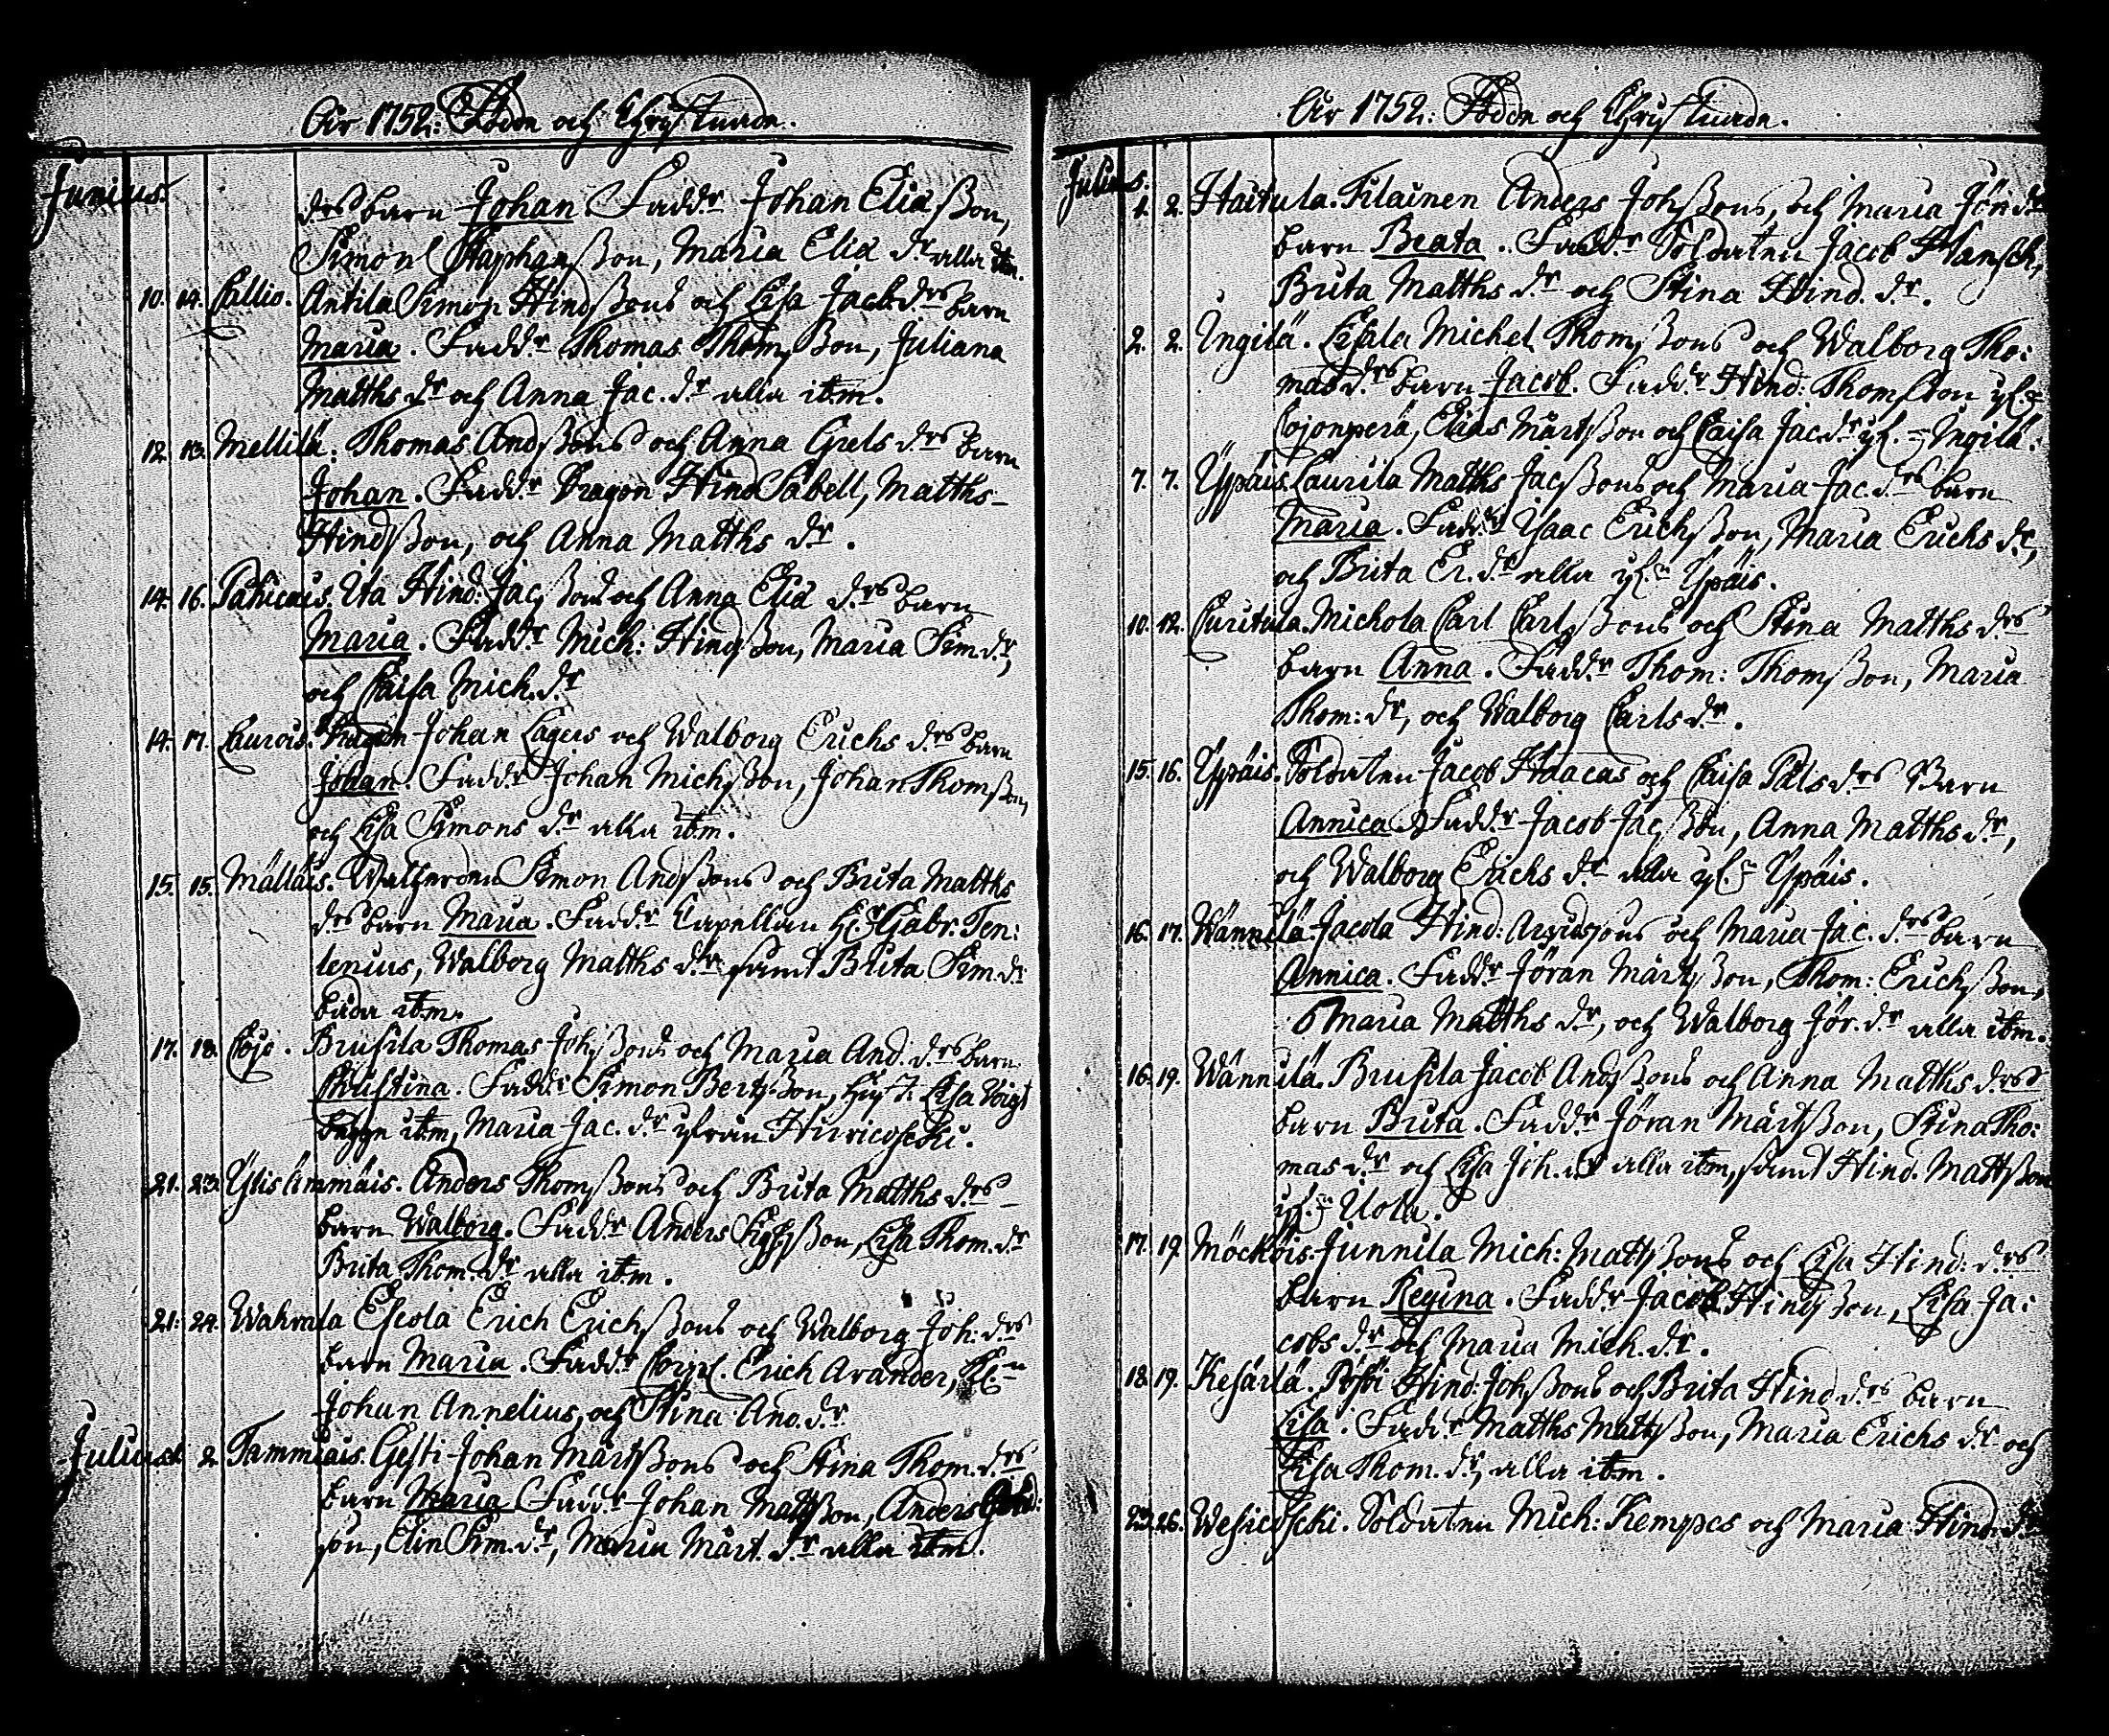 Åhr 1752: Födde och Christnade.
Junius.
drs barn Johan. Faddr Johan Eliæ ßon,
Simon Staphanßon, Maria Eliæ dr alla ibm.
10. 14. Callio. Antila Simon Hindßons och Lisa Jacobdrs barn
Maria. Faddr Thomas Thomßon, Juliana
Matths dr och Anna Jac. dr alla ibm.
12. 13. Mellilä: Thomas Andßons och Anna Grels drs barn
Johan. Faddr Dragon Hind Sabell, Matths-
Hindßon, och Anna Matths dr.
14. 16. Pahicais. Uta Hind: Jacßons och Anna Eliæ drs barn
Maria. Faddr Mich: Hindßon, Maria Sim. dr,
och Caisa Mich. dr
14. 17. Laurois. Dragon Johan Lagus och Walborg Erichs drs barn
Johan. Faddr Johan Michßon, Johan Thomßon,
och Lisa Simons dr alla ibm.
15. 15. Mälläis. Simon Andßons och Brita Matths
drs barn Maria. Faddr Capellan Hr Gabr: Ten:
lenius, Walborg Matths dr samt Brita Sim. dr
båda ibm.
17. 18. Cojo. Brusila Thomas Johßons och Maria And. drs barn
Christina. Faddr Simon Bertßon, Hust. Lisa Voigt
begge ibm, Maria Jac. dr ifrån Huricoski.
21. 23. Ylislimmäis. Anders Thomßons och Brita Matths drs
barn Walborg. Faddr Anders Sigfßon, Lisa Thom. dr
Brita Thom. dr alla ibm.
21. 24. Wahvala Escola Erich Erichßons och Walborg Joh: drs
barn Maria. Faddr Corpl. Erich Arander,
Johan Annelius, och Stina And. dr.
Julius 1. 2. Tammiais. Gesti Johan Märtßons och Stina Thom. drs
barn Maria Faddr Johan Mattßon, Anders
son, Elin Sim. dr, Maria Märt. dr alla ibm.
Åhr 1752: Födde och Christnade.
Julius.
1. 2. Haitula. Filainen Anders Johßons, och Maria Jör: dr
barn Beata. Faddr Soldaten Jacob Hansch,
Brita Matths dr och Stina Hind. dr.
2. 2. Ungilä. Cissala Michel Thomßons och Walborg Tho:
mas drs barn Jacob. Faddr Hind: Thomsson if:n
Cojonperä, Elias Märtßon och Caisa Jac. dr if:n Ungilä.
7. 7. Yppäis. Laurila Matths Jacßons och Maria Jac. drs barn
Maria. Faddr Ysaac Erichßon, Maria Erichs dr,
och Brita Er. dr alla if:n Ypäis.
10. 12. Curitula. Michola Carl Carlßons och Stina Matths drs
barn Anna. Faddr Thom: Thomßon, Maria
Thom: dr, och Walborg Carls dr.
15. 16. Yppäis. Soldaten Jacob Haacas och Caisa Påls drs Barn
Annica. Faddr Jacob Jacßon, Anna Matths dr,
och Walborg Erichs dr alla if:n Ypäis.
16. 17. Wännilä. Jacola Hind: Arvidssons och Maria Jac. drs barn
Annica. Faddr Jöran Märtßon, Thom: Erichßon,
Maria Matths dr, och Walborg Jör. dr alla ibm.
16. 19. Wännilä. Brusila Jacob Andßons och Anna Matths drs
barn Brita. Faddr Jöran Märtßon, Stina Tho:
mas dr och Lisa Joh. dr alla ibm, samt Hind. Mattßon
if:n Uola.
17. 19. Möckois. Junnila Mich: Mattßons och Lisa Hind: drs
barn Regina. Faddr Jacob Hindßon, Lisa Ja:
cobs dr och Maria Mich. dr.
18. 19. Kesärlä. Påsoi Hind: Johßons och Brita Hind drs barn
Lisa. Faddr Matths Mattßon, Maria Erichs dr och
Lisa Thom. dr, alla ibm.
23. 26. Wesicoscki. Soldaten Mich: Kempes och Maria Hind. dr